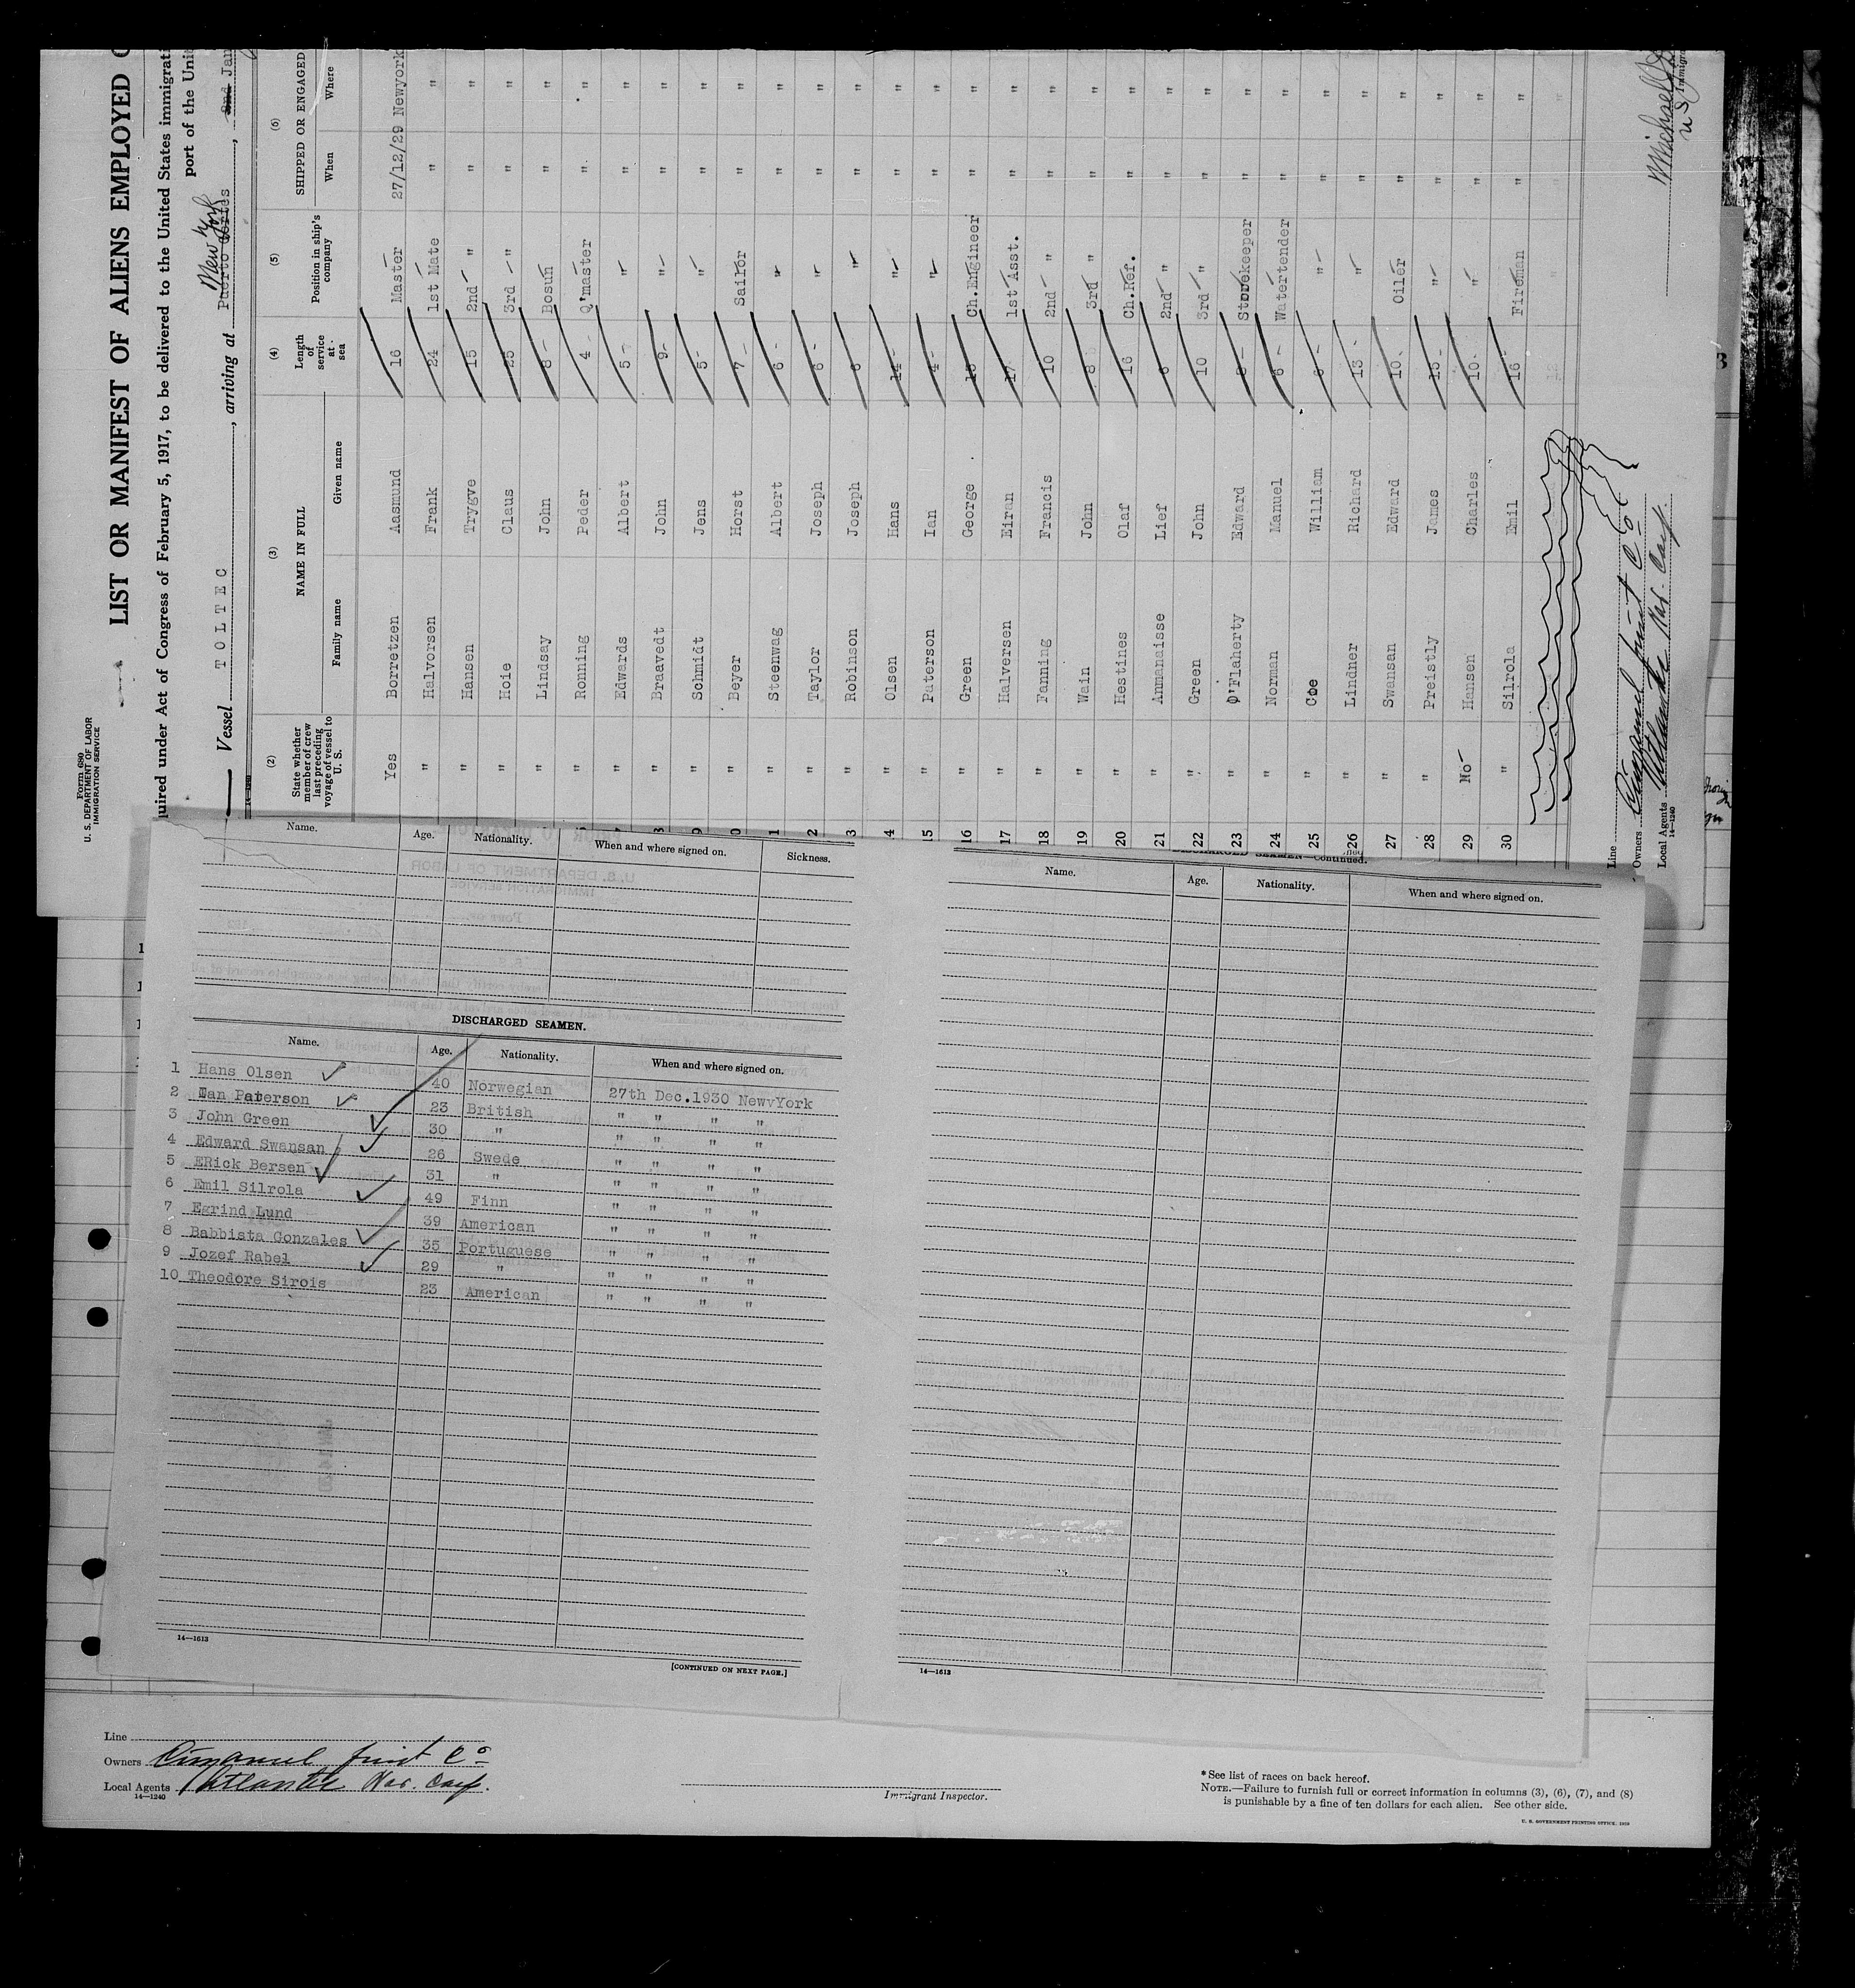 Form 680
U. S. DEPARTMENT OF LABOR
IMMIGRATION SERVICE
LIST OR MANIFEST OF ALIENS EMPLOYED
quired under Act of Congress of February 5, 1917, to be delivered to the United States immigrati
port of the Unit
New York
Vessel TOLTEC, arriving at Puerto Cortes, 2nd Jan
14—1240
(2) (3) (4) (5) (6)
State whether member of crew last preceding voyage of vessel to U. S. NAME IN FULL Length of service at sea Position in ship's company SHIPPED OR ENGAGED
Family name Given name When Where
Yes Borretzen Aasmund 16 Master 27/12/29 Newyork
" Halvorsen Frank 24 1st Mate " "
" Hansen Trygve 15 2nd " " "
" Hoie Claus 25 3rd " " "
" Lindsay John 8 Bosun " "
" Ronning Peder 4 Q'master " "
" Edwards Albert 5 " " "
8 " Braavedt John 9 " " "
9 " Schmidt Jens 5 " " "
0 " Beyer Horst 7 Sailor " "
1 " Steenwag Albert 6 " " "
2 " Taylor Joseph 6 " " "
3 " Robinson Joseph 6 " " "
14 " Olsen Hans 14 " " "
15 " Paterson Ian 4 " " "
16 " Green George 15 Ch.Engineer " "
17 " Halversen Eiran 17 1st Asst. " "
18 " Fanning Francis 10 2nd " " "
19 " Wain John 8 3rd " " "
20 " Hestines Olaf 16 Ch.Ref. " "
21 " Anmanaisse Lief 6 2nd " " "
22 " Green John 10 3rd " " "
23 " O'Flaherty Edward 8 Storekeeper " "
24 " Norman Manuel 6 Watertender " "
25 " Coe William 6 " " "
26 " Lindner Richard 13 " " "
27 " Swansan Edward 10 Oiler " "
28 " Preistly James 15 " " "
29 No Hansen Charles 10 " " "
30 " Silrola Emil 16 Fireman " "
Line
Owners Cuyamel Fruit Co
Local Agents Atlantic Nav. Corp.
14—1240
Michael
U S
Immigra
Name. Age. Nationality. When and where signed on. Sickness.
DISCHARGED SEAMEN.
Name. Age. Nationality. When and where signed on.
1 Hans Olsen 40 Norwegian 27th Dec.1930 NewvYork
2 Ian Paterson 23 British " " " "
3 John Green 30 " " " " "
4 Edward Swansan 26 Swede " " " "
5 ERick Bersen 31 " " " " "
6 Emil Silrola 49 Finn " " " "
7 Egrind Lund 39 American " " " "
8 Babbista Gonzales 35 Portuguese " " " "
9 Jozef Rabel 29 " " " " "
10 Theodore Sirois 23 American " " " "
14—1613
[CONTINUED ON NEXT PAGE.]
DISCHARGED SEAMEN—Continued.
Name. Age. Nationality. When and where signed on.
14—1613
Line
Owners Cuyamel Fruit Co
Local Agents Atlantic Nav. Corp.
14—1240
Immigrant Inspector.
*See list of races on back hereof.
NOTE.—Failure to furnish full or correct information in columns (3), (6), (7), and (8)
is punishable by a fine of ten dollars for each alien. See other side.
U. S. GOVERNMENT PRINTING OFFICE. 1929